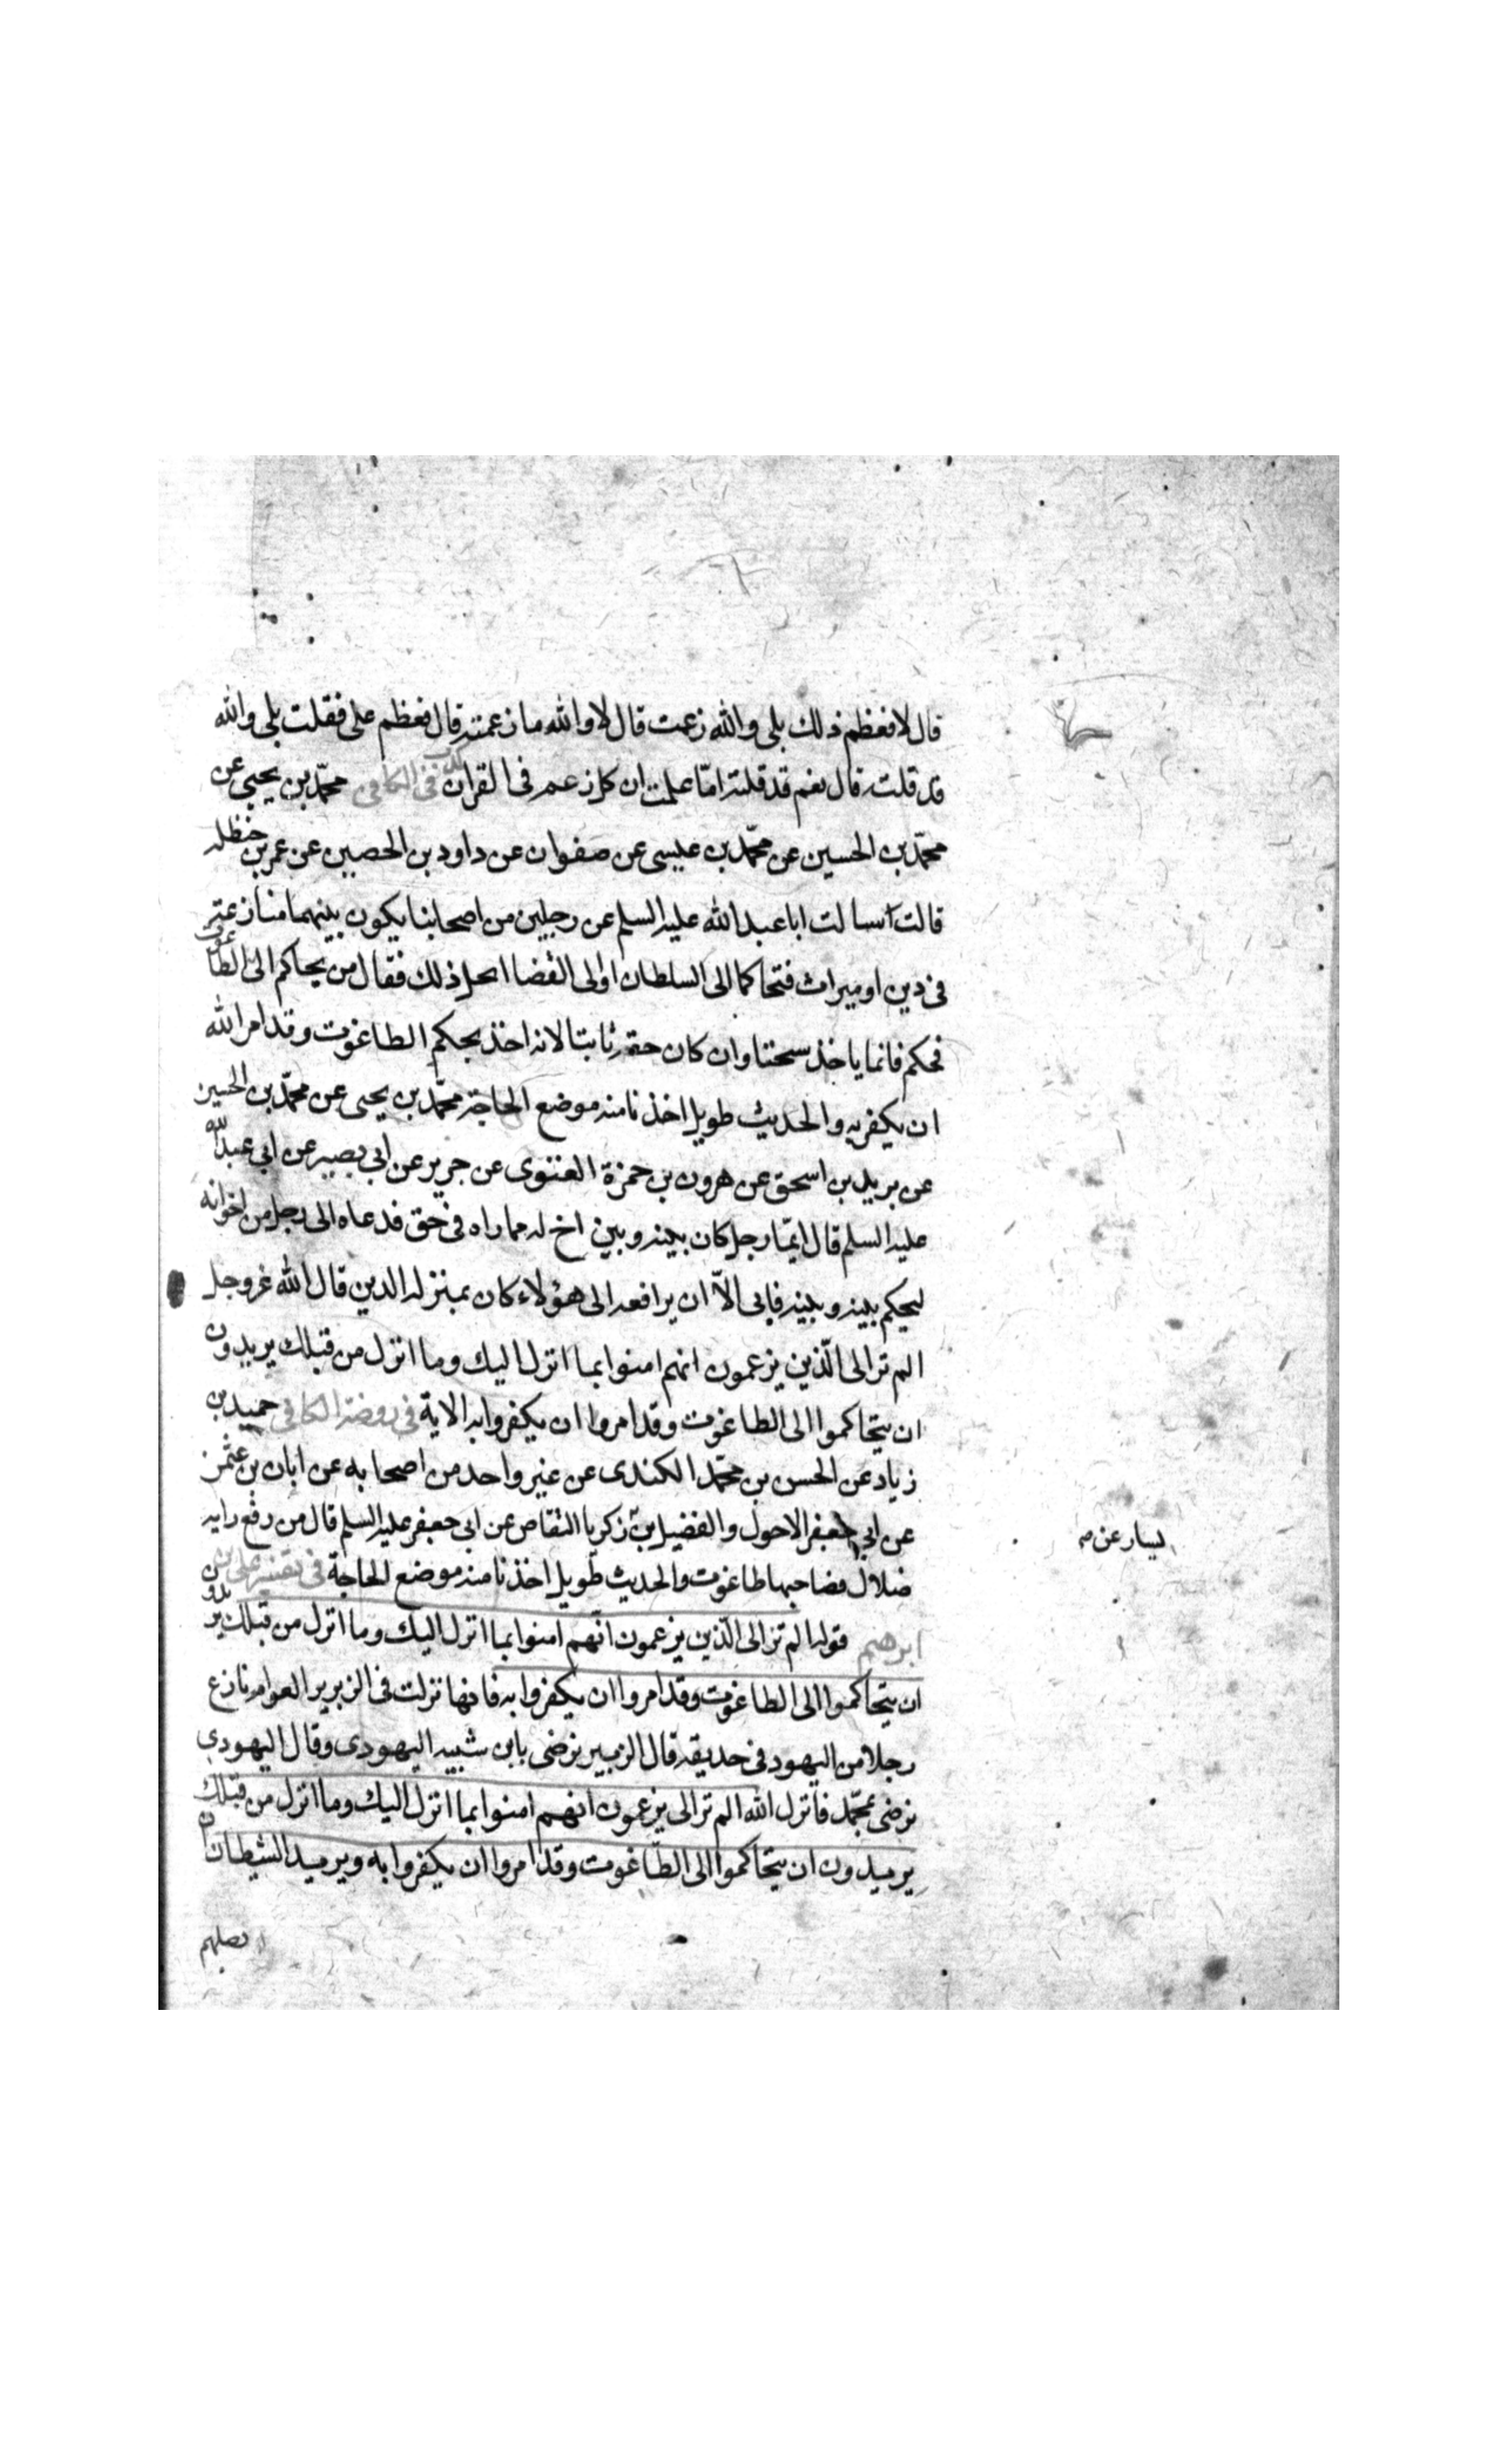 قال لا فعظم ذلك بلى والله زعمت قال لا والله ما زعمته قال فعظم على فقلت بلى والله
قد قلته قال نعم قد قلته امّا علمت ان كل زعم فى القران كذب فى الكافى محمّد بن يحيى عن
محمّد بن الحسين عن محمّد بن عيسى عن صفوان عن داود بن الحصين عن عمر بن حنظله
قالت سالت ابا عبد الله عليه السلم عن رجلين من اصحابنا يكون بينهما منازعته
فى دين او ميراث فتحاكما الى السلطان او الى القضا ايحل ذلك فقال من يحاكم الى الطاغوت
فحكم فانما ياخذ سحتا وان كان حقه ثابتا لانه اخذ بحكم الطاغوت وقد امر الله
ان يكفر به والحديث طويل اخذنا منه موضع الحاجة محمّد بن يحيى عن محمّد بن الحسين
عن بريد بن اسحق عن هرون بن حمزة الغنوى عن حريز عن ابى بصير عن ابى عبد الله
عليه السلم قال ايّما رجل كان بينه وبين اخ له مماراه فى حق فدعاه الى رجل من اخوانه
ليحكم بينه وبينه فابى الاّ ان يرافعه الى هؤلاء كان بمنزله الدين قال الله عزوجل
الم تر الى الّذين يزعمون انهم امنوا بما انزل اليك وما انزل من قبلك يريدون
ان يتحاكموا الى الطاغوت وقد امروا ان يكفروا به الاية فى روضة الكافى حميد بن
زياد عن الحسن بن محمّد الكندى عن غير واحد من اصحابه عن ابان بن عثمن
عن ابى جعفر الاحول والفضيل بن زكريا النقاص عن ابى جعفر عليه السلم قال من رفع رايه
يسار عن صه
ضلال فصاحبها طاغوت والحديث طويل اخذنا منه موضع الحاجة فى تفسير على بن
ابرهيم قوله الم تر الى الّذين يزعمون انّهم امنوا بما انزل اليك وما انزل من قبلك يريدون
ان يتحاكموا الى الطاغوت وقد امروا ان يكفروا به فانها نزلت فى الزبير بر العوام نازع
رجلا من اليهود فى حديقه قال الزبير نرضى بابن شيبه اليهودى وقال اليهودى
نرضى بمحمّد فانزل الله الم تر الى يزعمون انهم امنوا بما انزل اليك وما انزل من قبلك
يريدون ان يتحاكموا الى الطّاغوت وقد امروا ان يكفروا به ويريد الشيطان ان
يضلهم